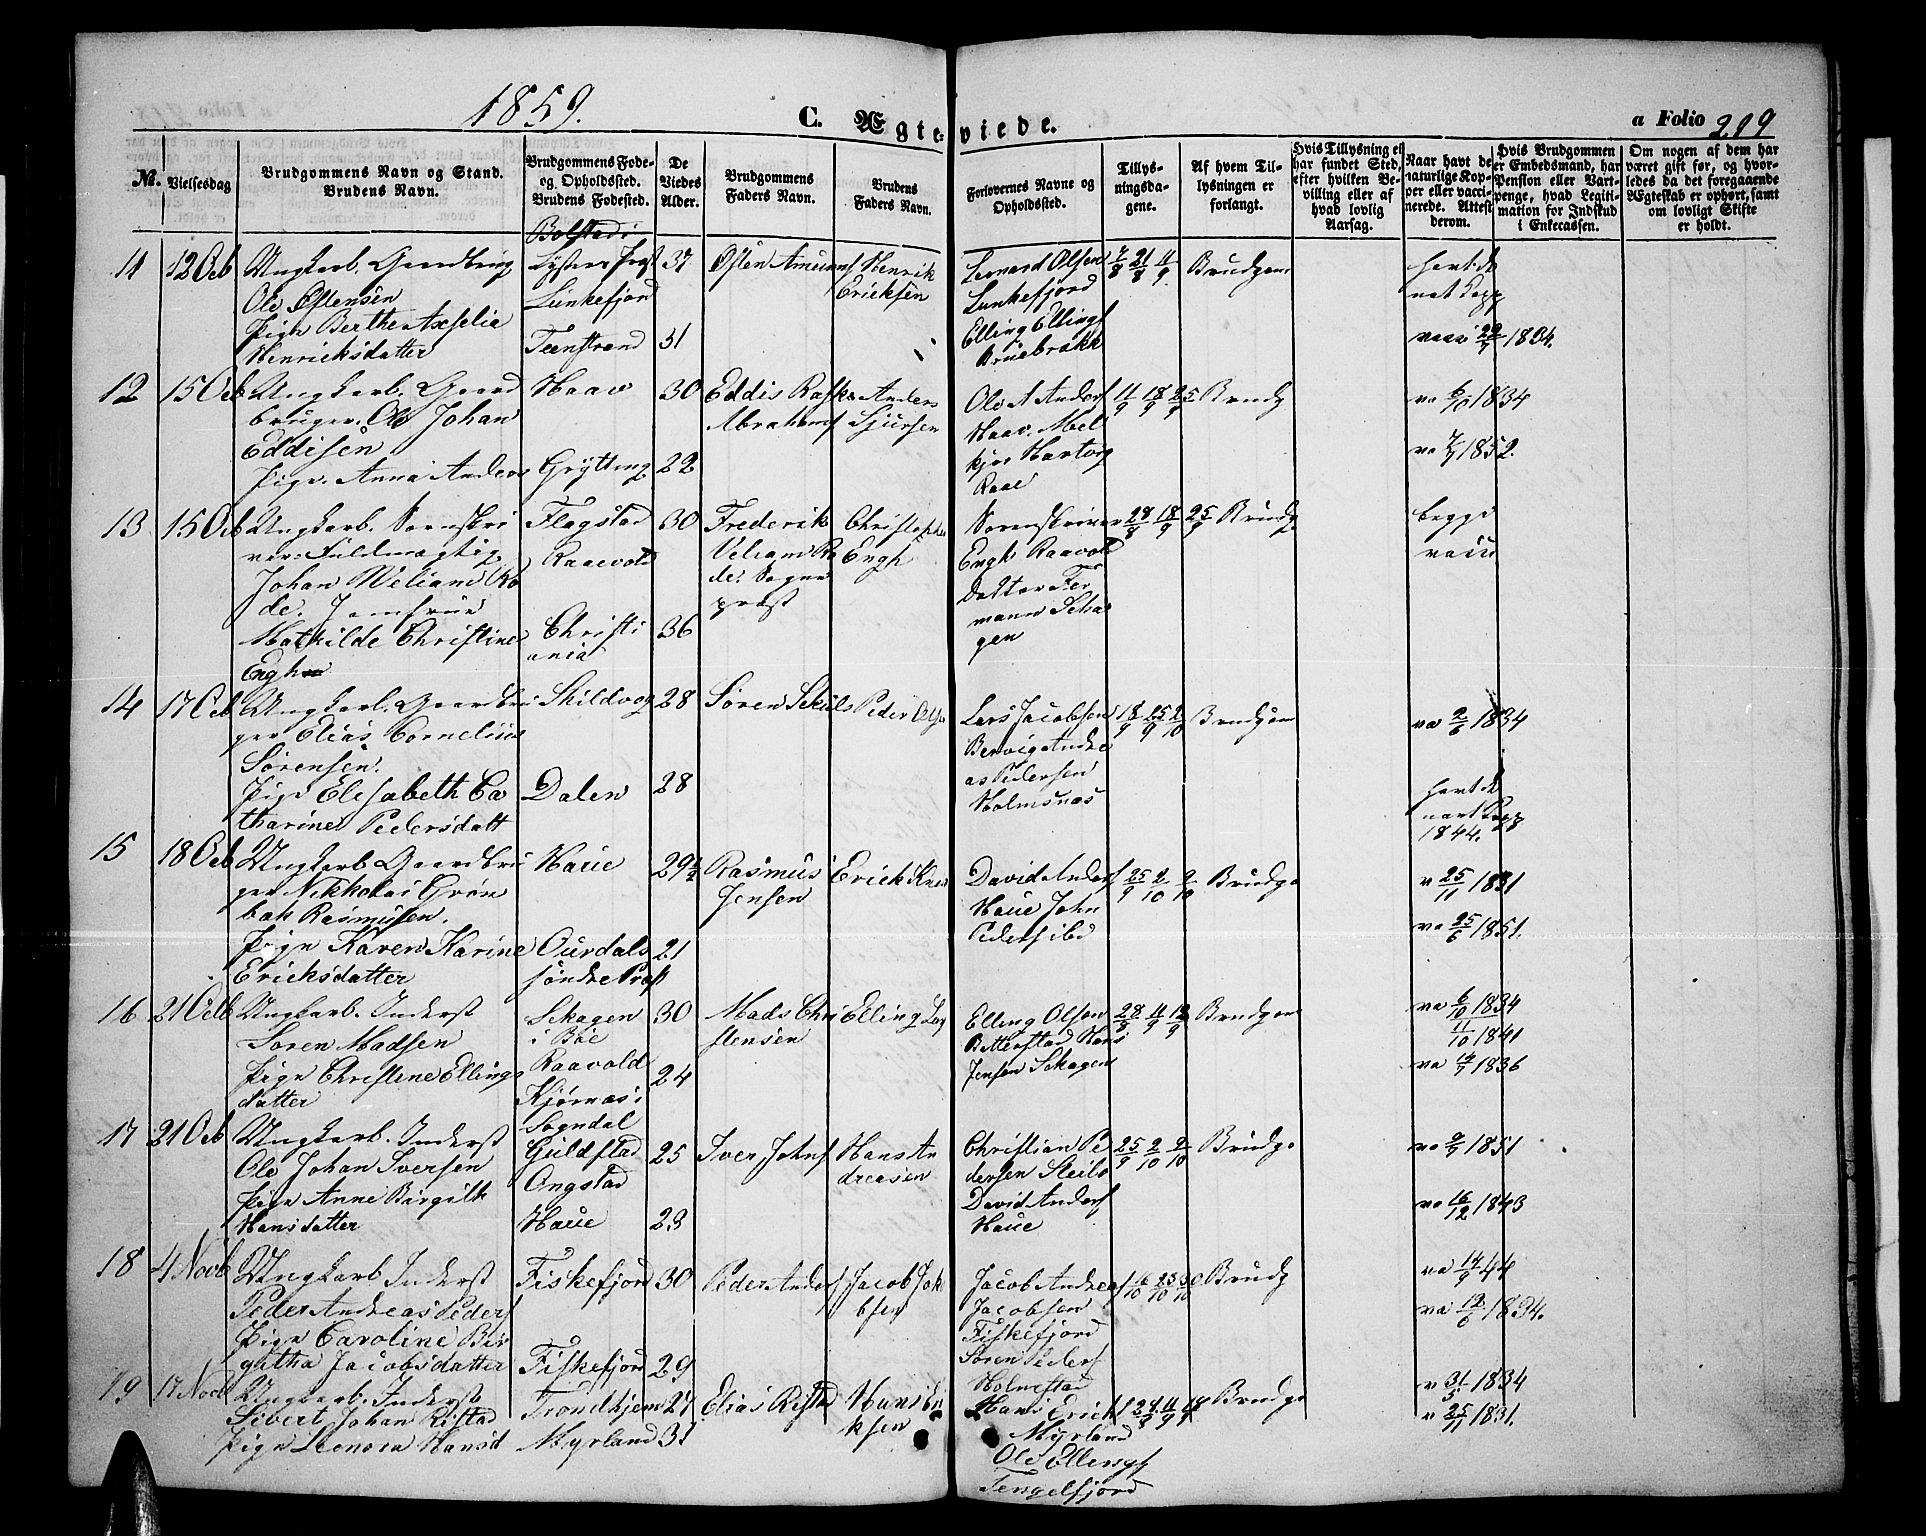 1859.
C. Ægteviede.
a Folio 219
No.
Vielsesdag
Brudgommens Navn og Stand.
Brudens Navn.
Brudgommens Føde-
og Opholdssted.
Brudens Fødested.
De
Viedes
Alder.
Brudgommens
Faders Navn.
Brudens
Faders Navn.
Forlovernes Navne og
Opholdssted.
Tillys-
ningsda-
gene.
Af hvem Til-
lysningen er
forlangt.
Hvis Tillysning ei
har fundet Sted,
efter hvilken Be-
villing eller af
hvad lovlig
Aarsag.
Naar havt de
naturlige Kop-
per eller vacci-
nerede. Attest
derom.
Hvis Brudgommen
er Embedsmand, har
Pension eller Vart-
penge, hvad Legiti-
mation for Indskud
i Enkecassen.
Om nogen af dem har
været gift før, og hvor-
ledes da det foregaaende
Ægteskab er ophørt, samt
om lovligt Skifte
er holdt.
11 12 Octb Ungkarl. Gaardbrug
Ole Østensen
Pige Berthe Axselia
Henricksdatter
Bolstad i
Lysters Præst
Lunkefjord
Teenstrand
37
31
Østen Amunds
Henrik
Ericksen
Leonard Olsen
Lunkefjord
Elling Ellings
Bruebrakk
7/8 21/8 11/9
Brudgom
havt de
nat Kopp
vacci 22/7 1834.
12 15 Octb Ungkarl. Gaard
bruger. Ole Johan
Eddisen
Pige. Anna Anders
Haav
Grytting
30
22
Eddis Raske
Abrahams
Anders
Sjursen
Ole A Anders
Haav. Mel
kjor Hartvig
Raae
11/9 18/9 25/9
Brudg
va 6/10 1834
va 7/7 1852.
13 15 Octb Ungkarl. Sorenskri
ver: Fuldmægtig
Johan Weliam Ro
de. Jomfrue
Mathilde Christine
Engh
Flagstad
Raavold
Christi
ania
30
36
Frederik
Veliam Ro
de. Sogne
præst
Christopher
Engh
Sorenskriver
Engh Raavold
Doktor Fer
mann Ska
gen
28/8 18/9 25/9
Brudg
begge
vacc
14 17 Octb Ungkarl. Gaardbru
ger Elias Cornelius
Sørensen.
Pige Elisabeth Ca
tharine Pedersdatt
Skildvog
Dalen
28
28
Søren Sekuls
Peder Olse
Lars Jacobsen
Bervig Andre
as Pedersen
Holmsnæs
18/9 25/9 2/10
Brudgom
va 2/6 1834
havt de
nat Kopp
1844.
15 18 Octb Ungkarl Gaardbru
ger Nikkolai Grøn
bak Rasmusen.
Pige Karen Karine
Ericksdatter
Haue
Ourdals
søndre Præst
29½
21
Rasmus
Jensen
Erick Knu
David Anders
Haue John
Peders ibd
25/9 2/10 9/10
Brudgo
v 25/11 1831
va 25/6 1851.
16 21 Octb Ungkarl. Inderst
Søren Madsen
Pige Christine Ellings
datter
Skagen
i Bøe
Raavold
30
24
Mads Chri
stensen
Elling Lars
Elling Olsen
Bitterstad Hans
Jensen Skagen
28/8 11/9 18/9
Brudgom
va 6/10 1834
11/10 1841
va 14/7 1836
17 21 Octb Ungkarl. Inderst
Ole Johan Iversen
Pige Anne Birgith
Hansdatter
Kjørnæs i
Sogndal
Guldstad
Ongstad
Haue
25
23
Iver Johns
Hans An
dreasen
Christian Pe
dersen Steilo
David Anders
Haue
25/9 2/10 9/10
Brudgo
va 2/7 1851
va 16/12 1843
18 4 Novb Ungkarl Inderst
Peder Andreas Peders
Pige Caroline Bir
githa Jacobsdatter
Fiskefjord
Fiskefjord
30
29
Peder Anders
Jacob Jak
obsen
Jacob Andreas
Jacobsen
Fiskefjord
Søren Peders
Holmstad
16/10 23/10 30/10
Brudg
va 14/9 44
va 12/6 1834.
19 17 Novb Ungkarl. Inderst
Sivert Johan Ristad
Pige Leenora Hansd
Trondhjem
Myrland
27
31
Elias Ristad
Hans Eri
ksen
Hans Ericks
Myrland
Ole Ellings
Tengelfjord
28/8 11/9 18/9
Brudgo
v 31/5 1834
v 25/11 1831.